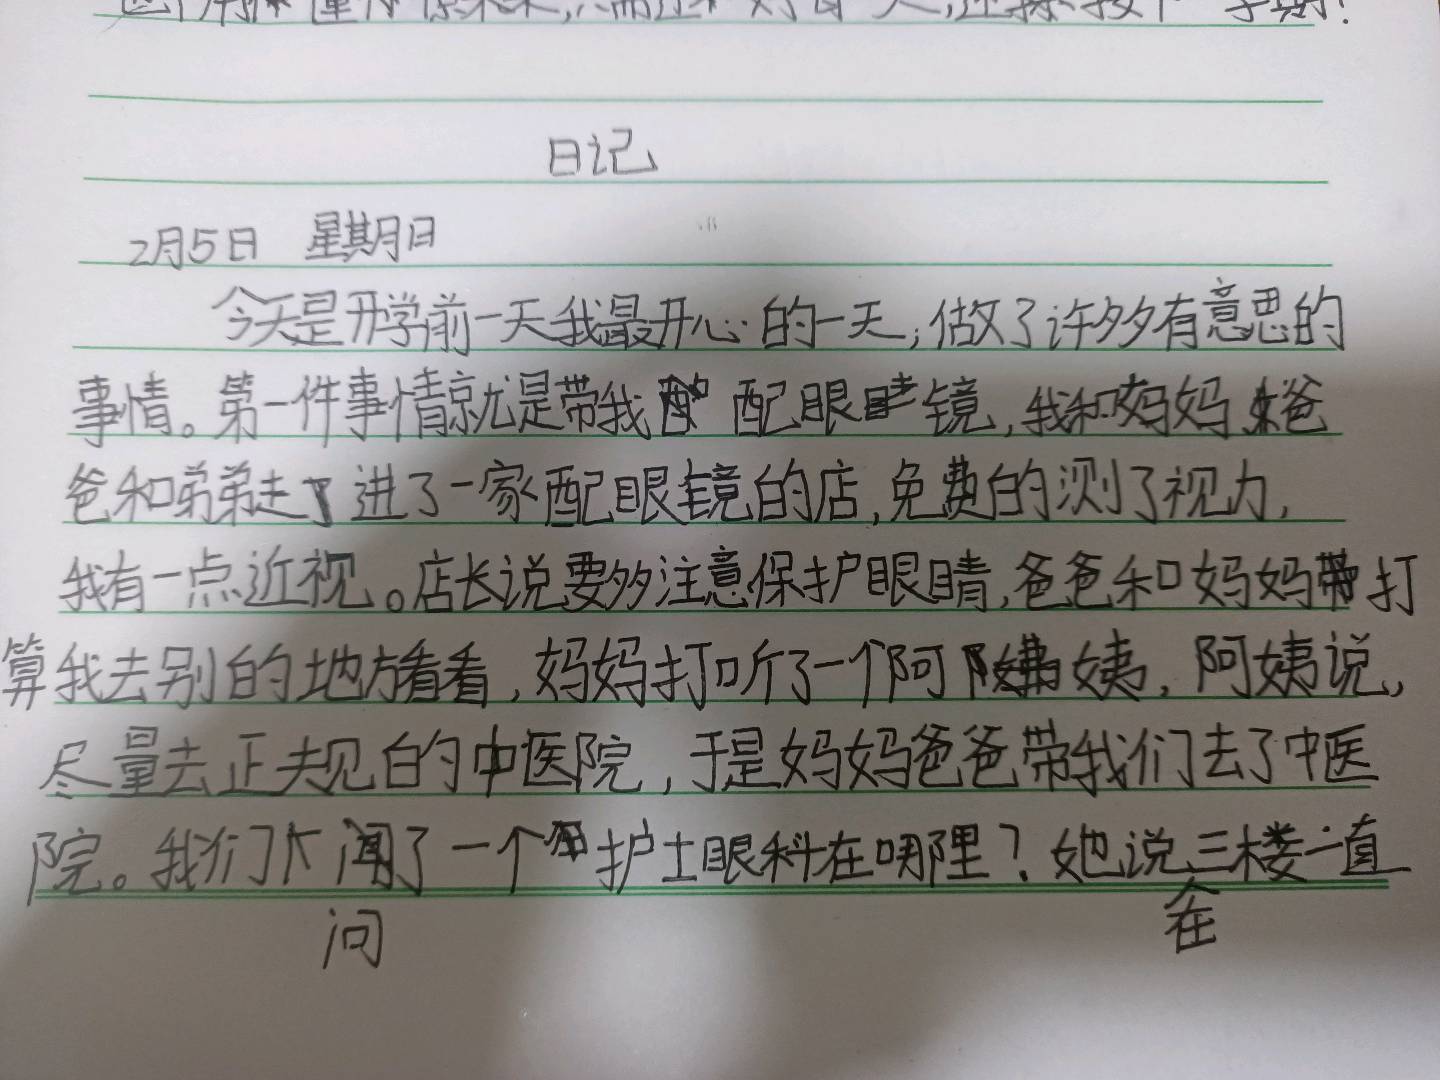 日记
2月5日 星期日
今天是开学前一天我最开心的一天,做了许多有意思的
事情。第一件事情就是带我配眼镜,我和妈妈爸
爸和弟弟走进了一家配眼镜的店,免费的测了视力,
我有一点近视。店长说要多注意保护眼睛,爸爸和妈妈带打
算我去别的地方看看,妈妈打听了一个阿姨,阿姨说,
尽量去正夫见白的中医院,于是妈妈爸爸带我们去了中医
院。我们问了一个护士眼科在哪里?她说在三楼一直